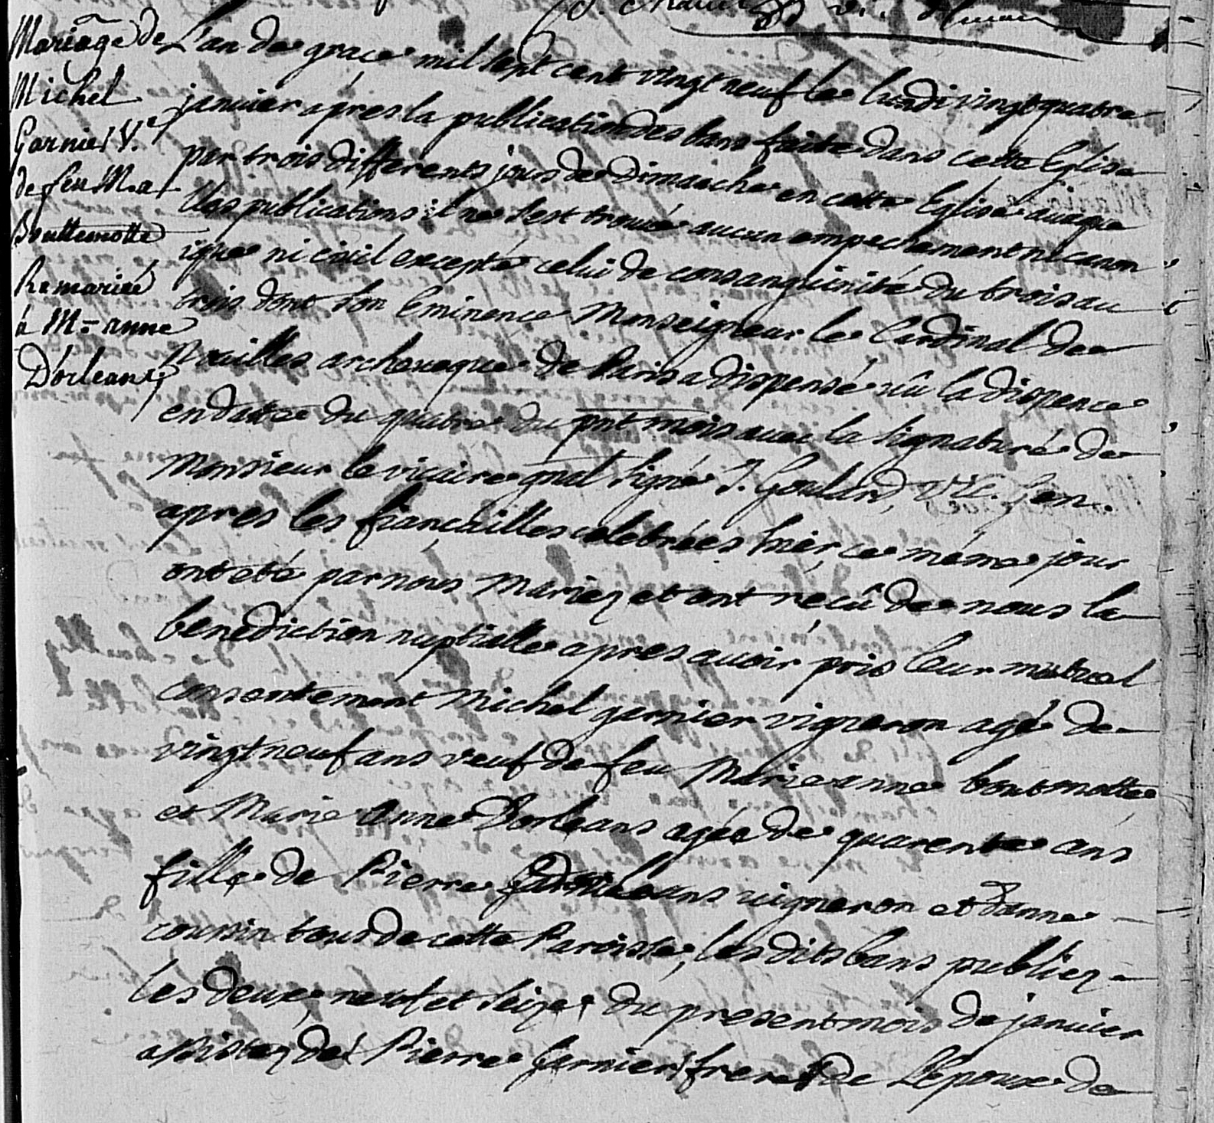 Mariage de
Michel
Garnier V.e
de feu M.a
Bouttemotte
Remariée
à M.= anne
D'orleans
L'an de grace mil sept cent vingt neuf le lundi vingt quatre
janvier apres la publication des bans faitte dans cette Eglise
par trois differents jours de Dimanche en cette Eglise auxque
lles publications il ne s'est trouvé aucun empechement ni canon
ique ni civil excepté celui de consanguinité du trois au
trois dont Son Eminence Monseigneur le Cardinal de
Noailles archeveque de Paris a dispensé vû la dispence
en datte du quatre du pnt mois avec la signature de
Monsieur le vicaire gnal signé J. Goulard, V. Gen.
apres les fiançailles celebrées hier ce méme jour
ont été par nous Mariez et ont reçû de nous la
benediction nuptialle apres avoir pris leur mutuel
consentement Michel garnier vigneron agé de
vingt neuf ans veuf de feu Marie anne boutmotte
et Marie Anne Dorleans agée de quarente ans
fille de Pierre Dorleans vigneron et danne
cousin tous de cette Paroisse, les dits bans publiez
les deux, neuf et seize du present mois de janvier
assistez de Pierre garnier frere de L'epoux de